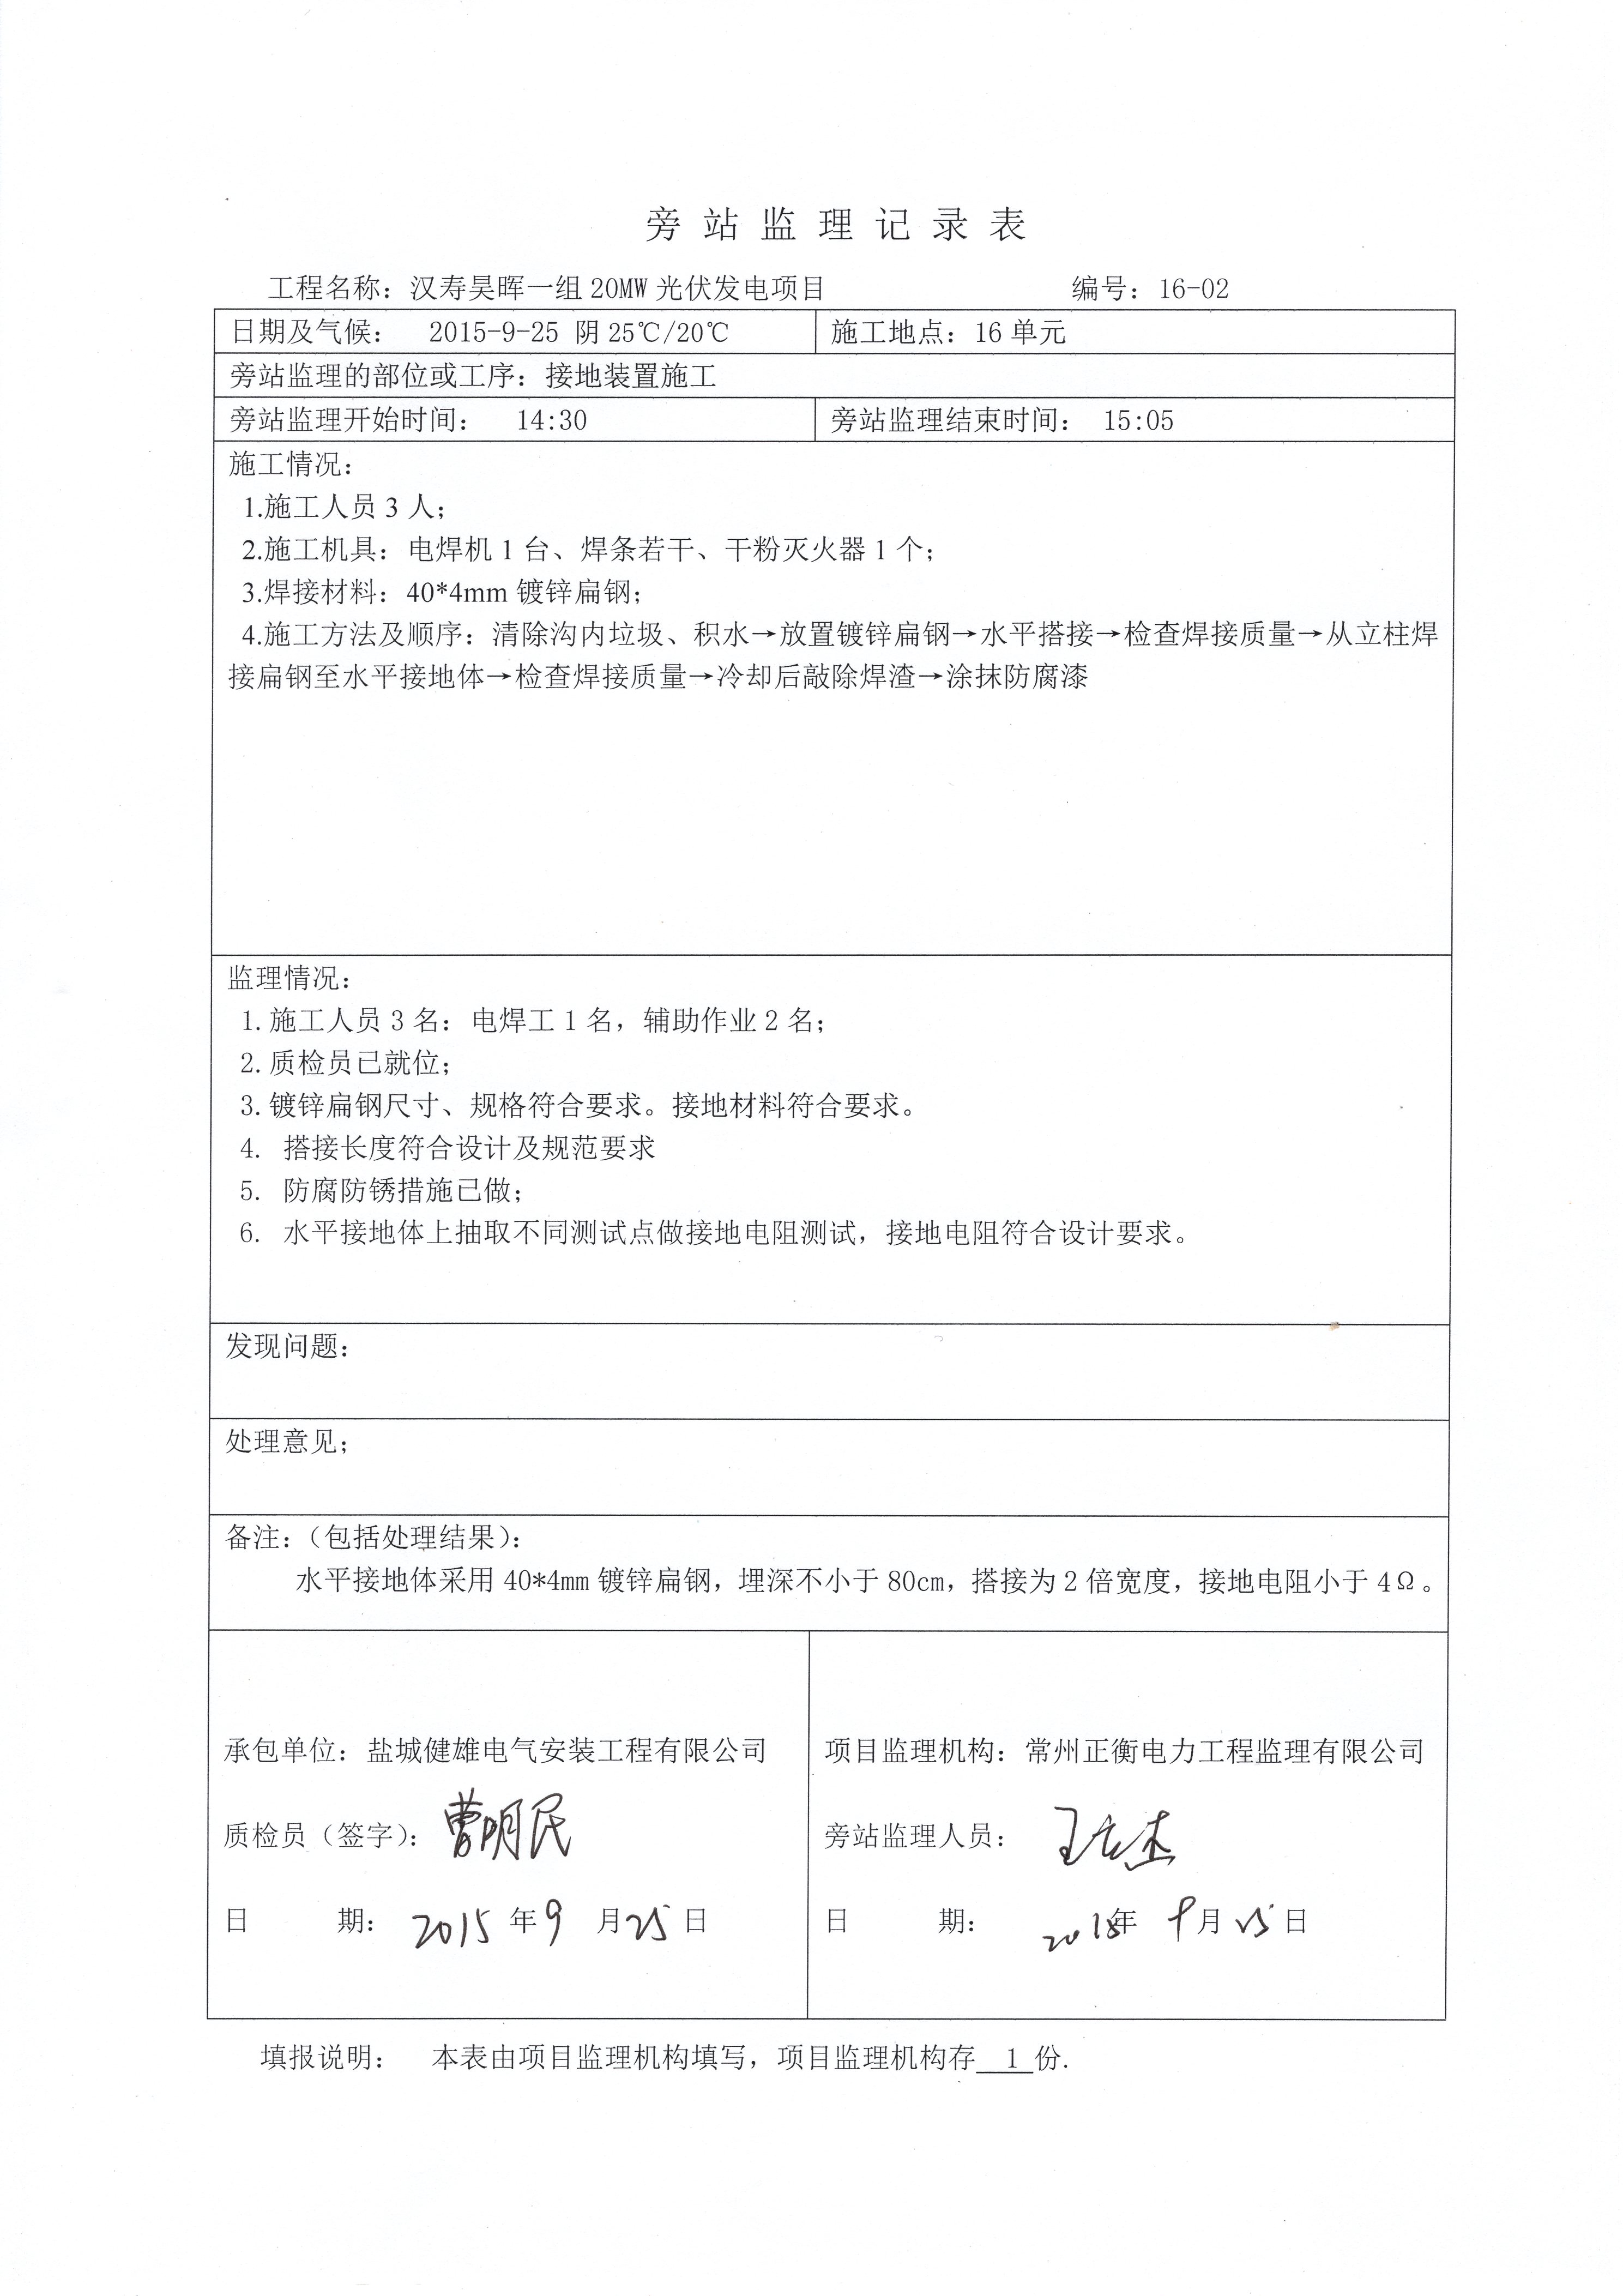 旁站监理记录表
工程名称：汉寿昊晖一组20MW光伏发电项目 编号：16-02
日期及气候： 2015-9-25 阴25℃/20℃ 施工地点：16单元
旁站监理的部位或工序：接地装置施工
旁站监理开始时间： 14:30 旁站监理结束时间： 15:05
施工情况：
1.施工人员3人；
2.施工机具：电焊机1台、焊条若干、干粉灭火器1个；
3.焊接材料：40*4mm镀锌扁钢；
4.施工方法及顺序：清除沟内垃圾、积水→放置镀锌扁钢→水平搭接→检查焊接质量→从立柱焊
接扁钢至水平接地体→检查焊接质量→冷却后敲除焊渣→涂抹防腐漆
监理情况：
1.施工人员3名：电焊工1名，辅助作业2名；
2.质检员已就位；
3.镀锌扁钢尺寸、规格符合要求。接地材料符合要求。
4. 搭接长度符合设计及规范要求
5. 防腐防锈措施已做；
6. 水平接地体上抽取不同测试点做接地电阻测试，接地电阻符合设计要求。
发现问题：
处理意见；
备注：（包括处理结果）：
水平接地体采用40*4mm镀锌扁钢，埋深不小于80cm，搭接为2倍宽度，接地电阻小于4Ω。
承包单位：盐城健雄电气安装工程有限公司 项目监理机构：常州正衡电力工程监理有限公司
质检员（签字）：曹明民 旁站监理人员：
日 期： 2015年9月25日 日 期： 2015年9月25日
填报说明： 本表由项目监理机构填写，项目监理机构存 1 份.